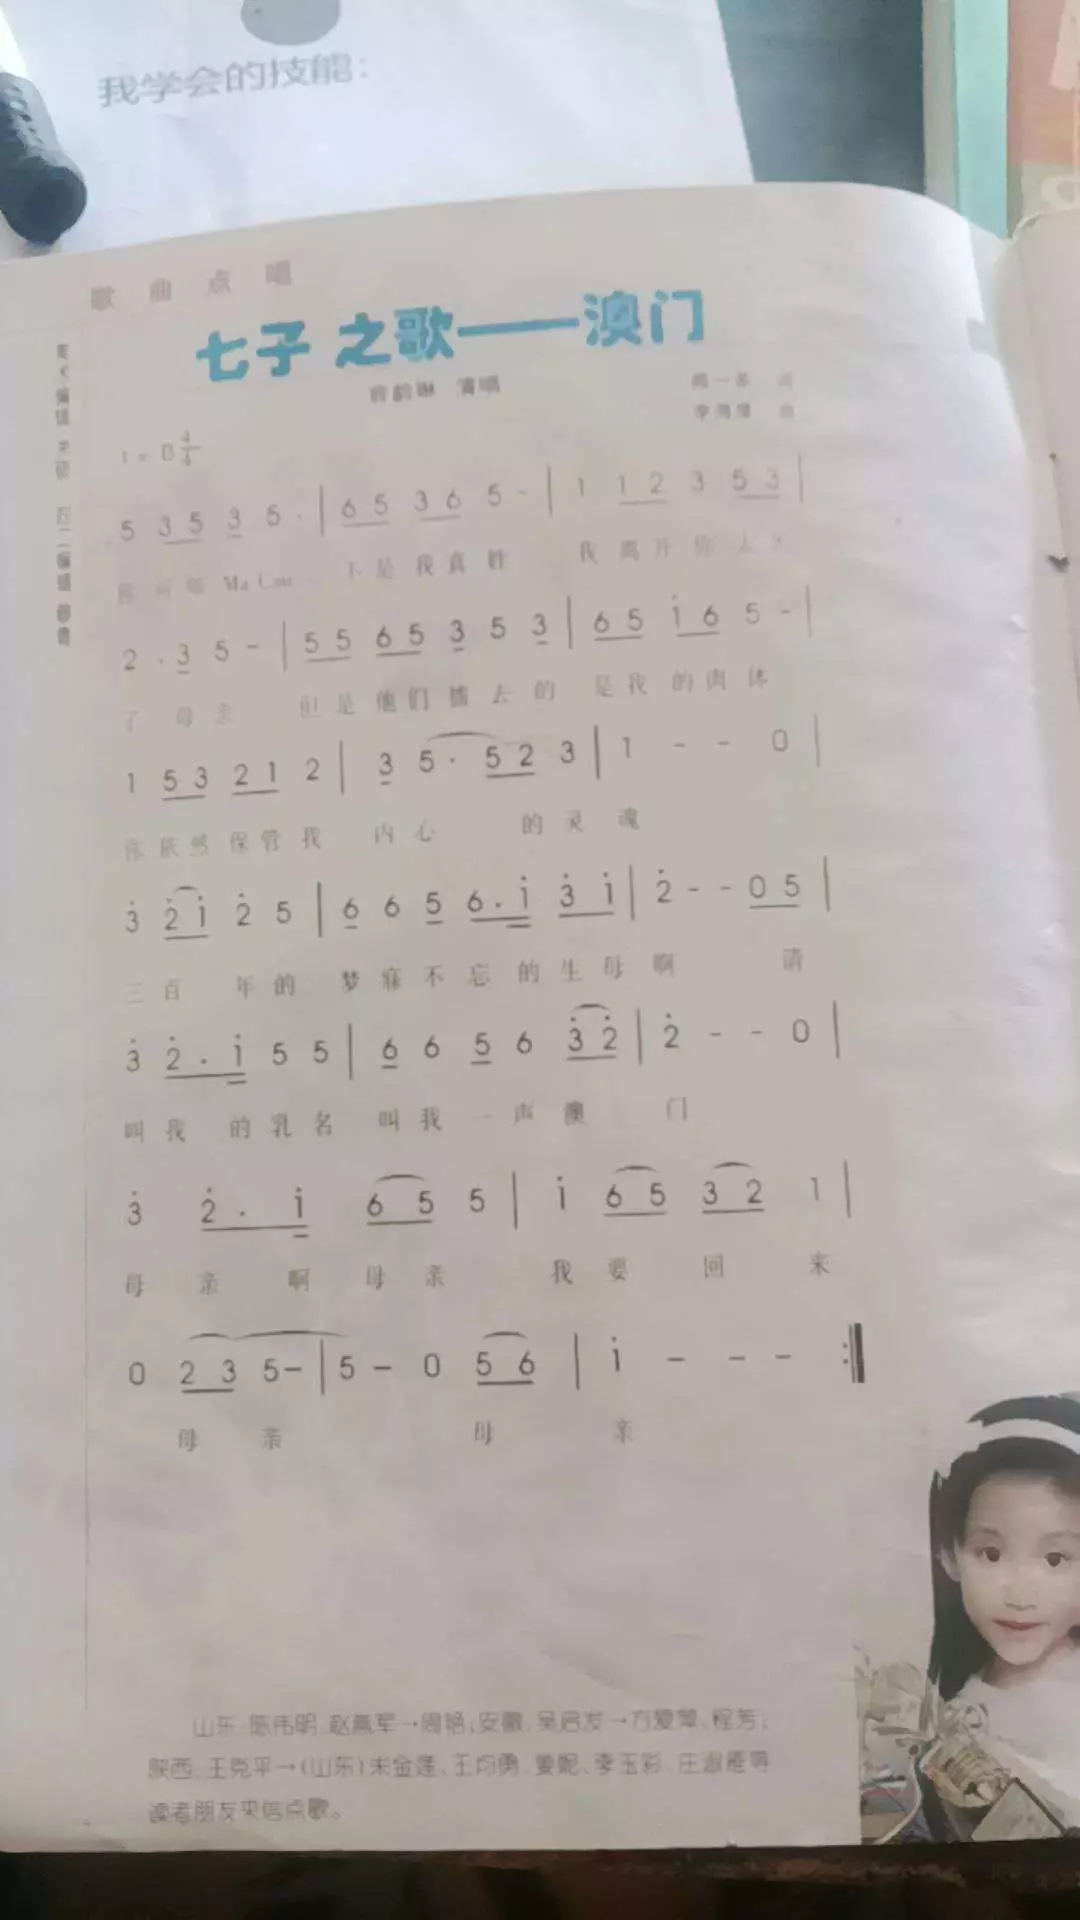 我学会的技能:
歌曲点唱
七子之歌——澳门
容韵琳 演唱
闻一多 词
李海鹰 曲
1=D 4/4
5 3 5 3 5 . | 6 5 3 6 5 - | 1 1 2 3 5 3 |
你可知 Macau 不是我真姓 我离开你太久
2 . 3 5 - | 5 5 6 5 3 5 3 | 6 5 i 6 5 - |
了 母亲 但是他们掳去的 是我的肉体
1 5 3 2 1 2 | 3 5 . 5 2 3 | 1 - - 0 |
你依然保管我 内心 的灵魂
3̇ 2̇ i 2̇ 5 | 6 6 5 6 . i 3̇ i | 2̇ - - 0 5 |
三百 年的 梦寐不忘的生母啊 请
3̇ 2̇ . i 5 5 | 6 6 5 6 3̇ 2̇ | 2̇ - - 0 |
叫我 的乳名 叫我一声澳 门
3̇ 2̇ . i 6 5 5 | i 6 5 3 2 1 |
母 亲 啊 母 亲 我 要 回 来
0 2 3 5 - | 5 - 0 5 6 | i - - - :||
母 亲 母 亲
山东:陈伟明、赵赢军→周艳;安徽:吴启发→方爱萍、程芳;
陕西:王克平→(山东)宋金莲、王均勇、姜妮、李玉彩、庄淑雁等
读者朋友来信点歌。